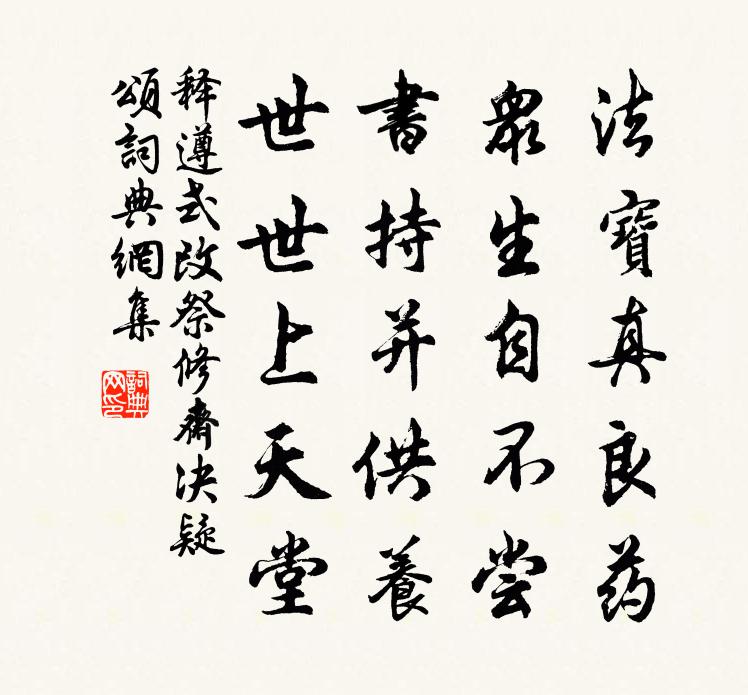 法寶真良药
眾生自不尝
書持并供養
世世上天堂
释遵式改祭修齋决疑
頌詞典網集
詞典网印